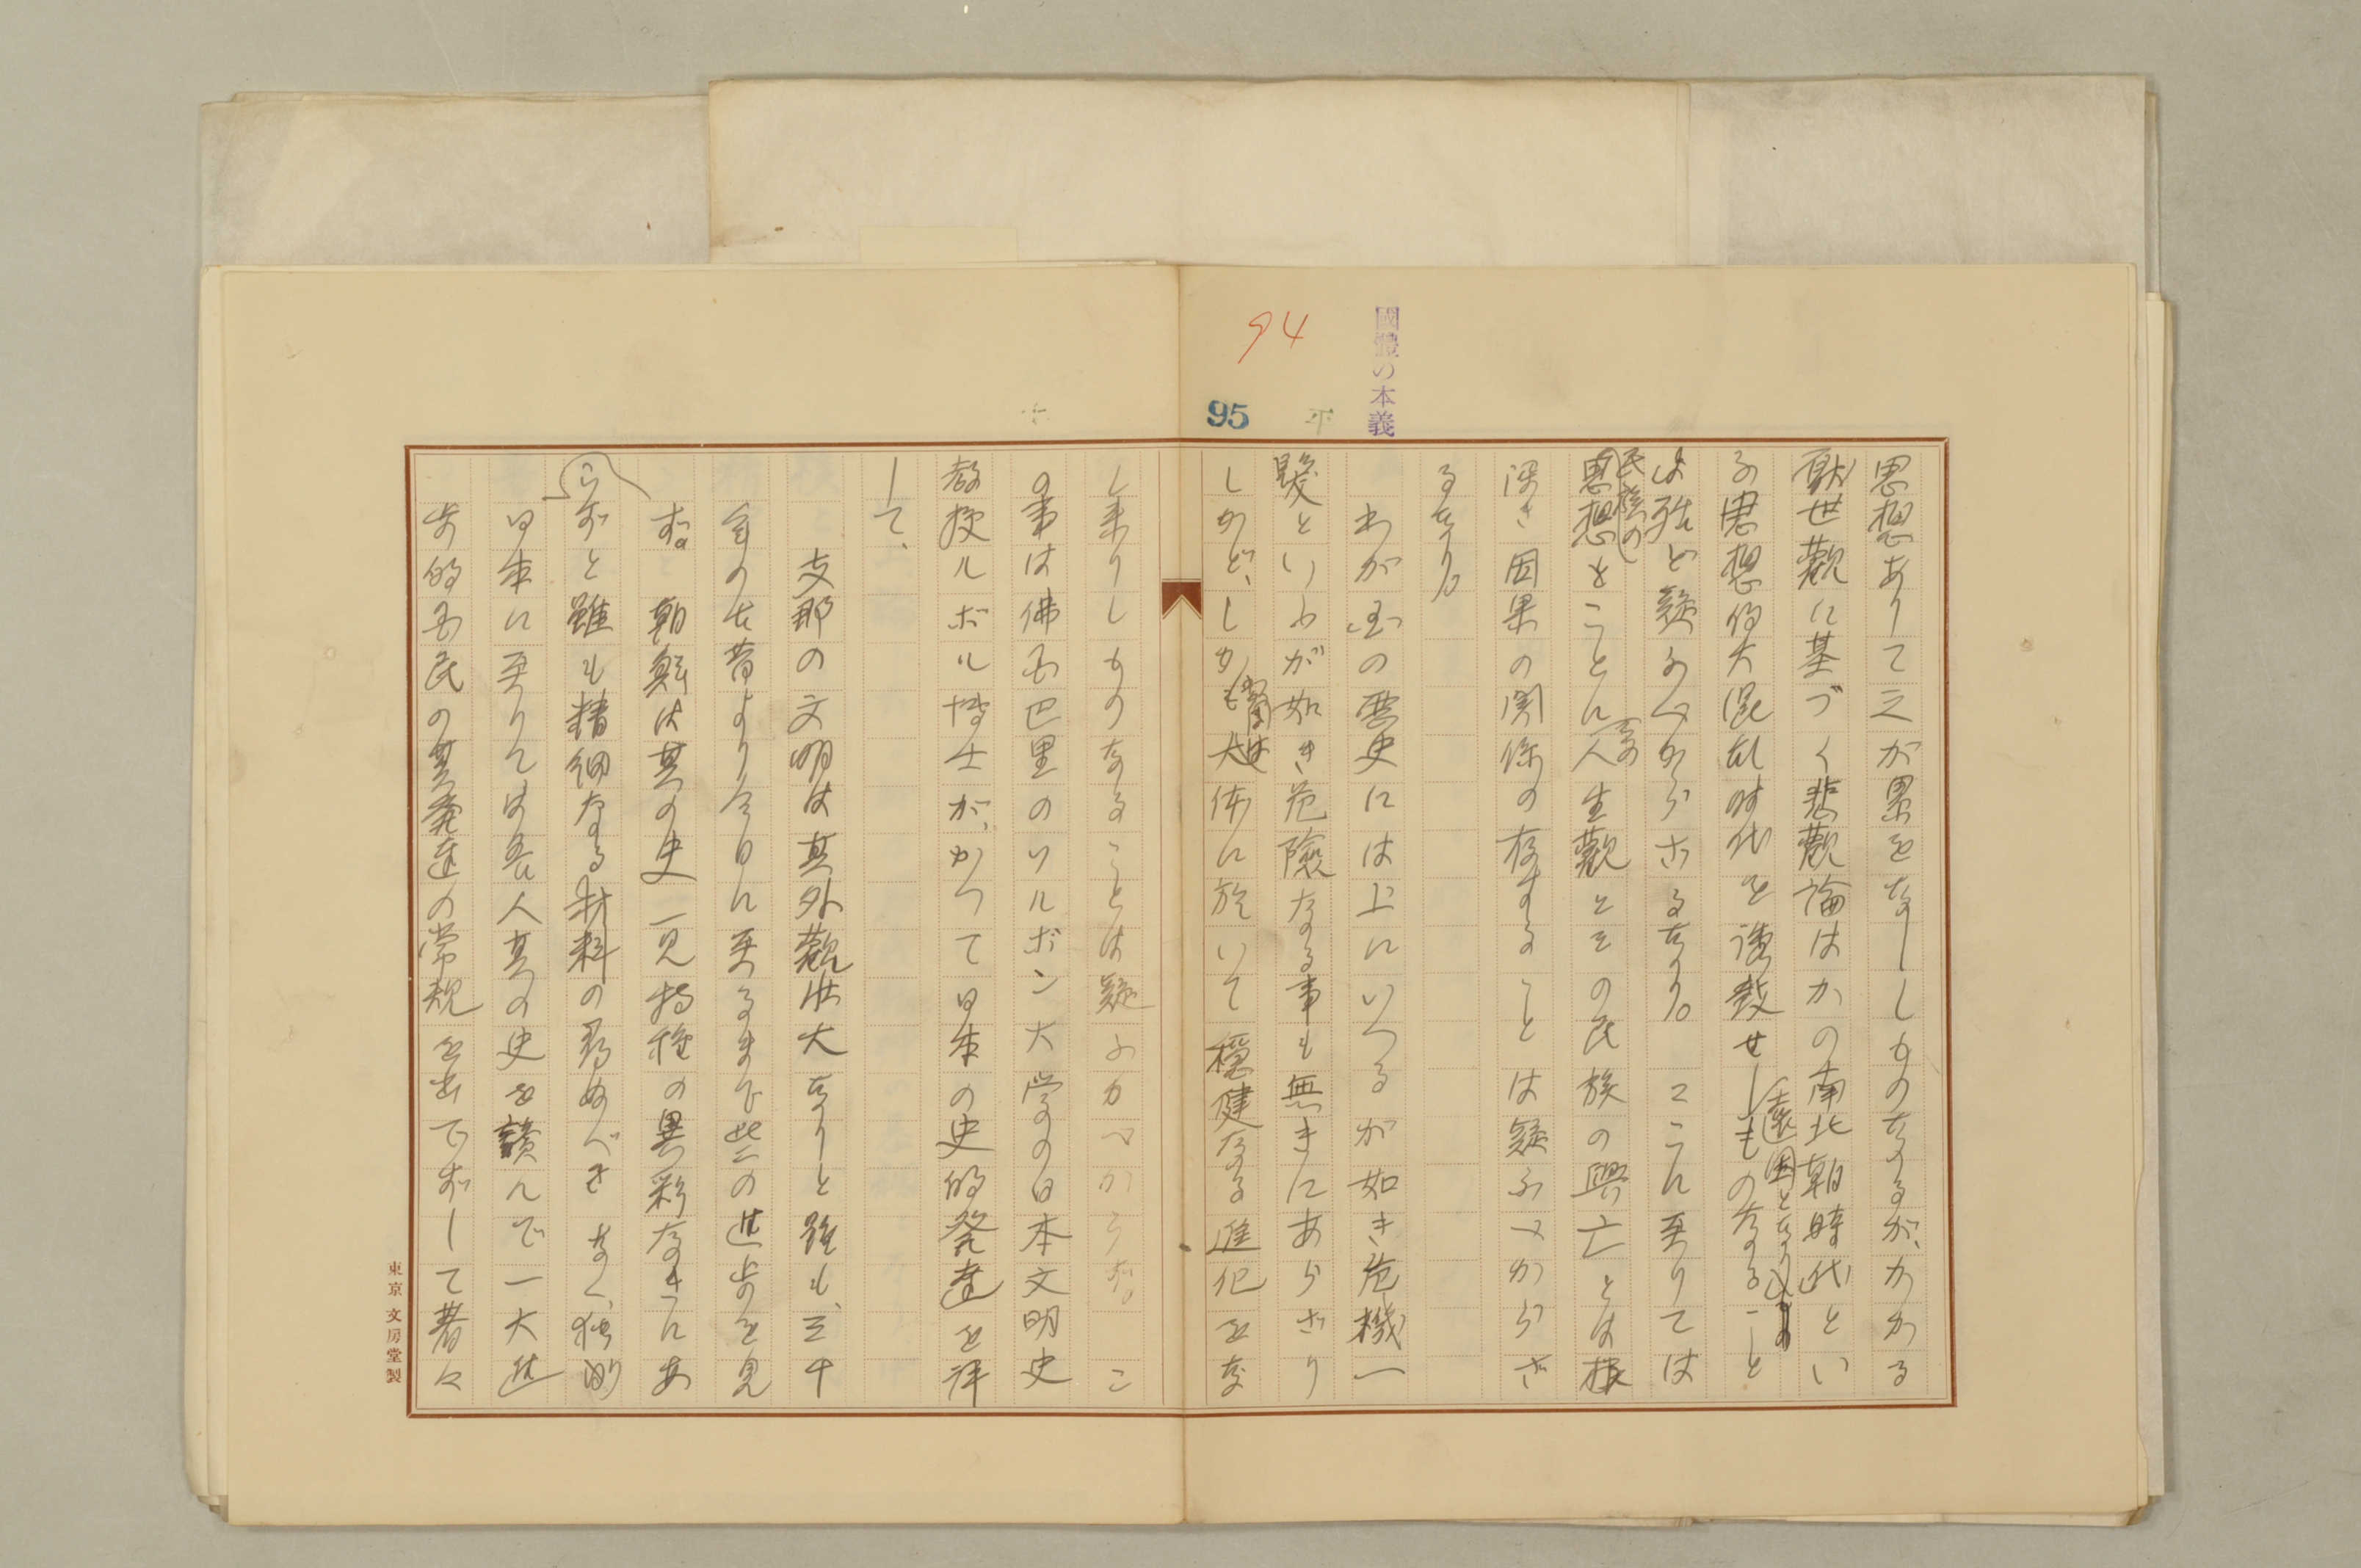 國體の本義
94
95
思想ありて之が累をなししものなるが、かかる
厭世觀に基づく悲觀論はかの南北朝時代とい
ふ思想的大混乱時代を誘致せしものなること
遠因となり
は殆ど疑ふべからざるなり。ここに至りては
民族の
思想とことに人生觀とその民族の興亡とは根
深き因果の関係の存することは疑ふべからざ
るなり。
わが国の歴史には上にいへるが如き危機一
髪といふが如き危険なる事も無きにあらざり
しかど、しかも大体に於いて穏健なる進化をな
し来りしものなることは疑ふべからず。こ
の事は佛国巴里のソルボン大学の日本文明史
教授ルボル博士が、かつて日本の史的発達を評
して、
支那の文明は其外觀壮大なりと雖も、三千
年の古昔より今日に至るまで些の進歩を見
ず。朝鮮は其の史一見特種の異彩なきにあ
らずと雖も精細なる材料の尋ぬべきなく、独り
日本に至りては吾人其の史を讀んで一大進
歩的国民の其発達の常規を出でずして着々
東京文房堂製